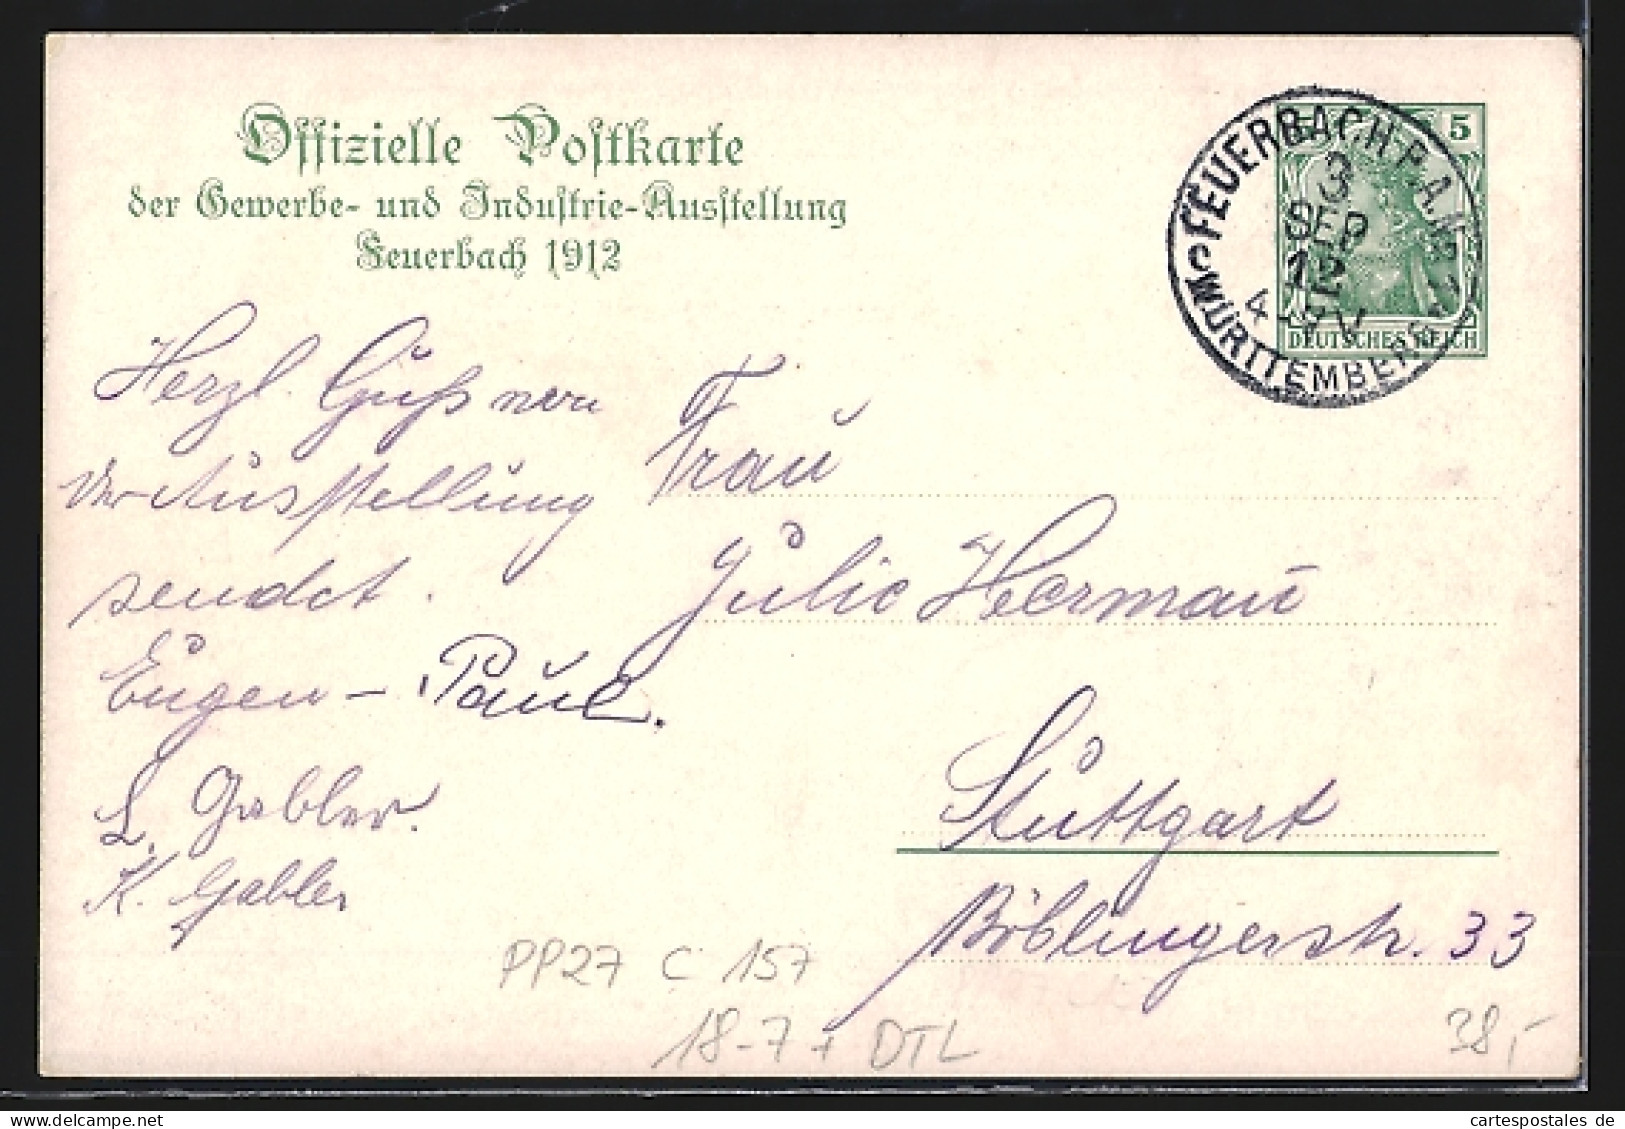 Offizielle Postkarte
der Gewerbe- und Industrie-Ausstellung
Feuerbach 1912
FEUERBACH
WÜRTTEMBERG
3
SEP
12
5
DEUTSCHES REICH
Herzl. Gruß von
der Ausstellung
sendet.
Eugen - Paul.
L. Gabler.
K. Gabler
Frau
Julie Herman
Stuttgart
Böblingerstr. 33
PP27 C 157
18-7 + DTL
38,-
cartespostales de